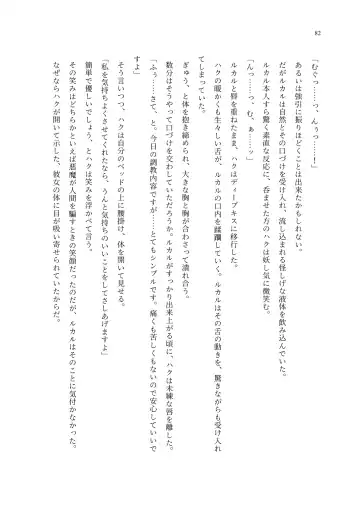 82
「むぐっ……っ、んぅっ……！」
あるいは強引に振りほどくことは出来たかもしれない。
だがルカルは自然とその口づけを受け入れ、流し込まれる怪しげな液体を飲み込んでいた。
ルカル本人すら驚く素直な反応に、呑ませた方のハクは妖し気に微笑む。
「んっ……っ、む、ぁ……っ」
ルカルと唇を重ねたまま、ハクはディープキスに移行した。
ハクの暖かくも生々しい舌が、ルカルの口内を蹂躙していく。ルカルはその舌の動きを、驚きながらも受け入れ
てしまっていた。
ぎゅう、と体を抱き締められ、大きな胸と胸が合わさって潰れ合う。
数分はそうやって口づけを交わしていただろうか。ルカルがすっかり出来上がる頃に、ハクは未練な唇を離した。
「ふぅ……さて、と。今日の調教内容ですが……とてもシンプルです。痛くも苦しくもないので安心していいで
すよ」
そう言いつつ、ハクは自分のベッドの上に腰掛け、体を開いて見せる。
「私を気持ちよくさせてくれたなら、うんと気持ちのいいことをしてさしあげますよ」
簡単で優しいでしょう、とハクは笑みを浮かべて言う。
その笑みはどちらかといえば悪魔が人間を騙すときの笑顔だったのだが、ルカルはそのことに気付かなかった。
なぜならハクが開いて示した、彼女の体に目が吸い寄せられていたからだ。